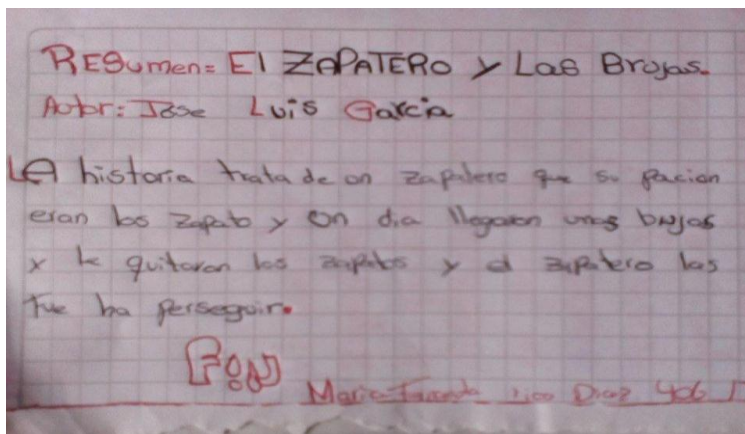 Resumen= El ZAPATERO y Las Brujas.
Autor: Jose Luis Garcia
LA historia trata de un zapatero que su pacion
eran los zapato y un dia llegaron unas brujas
y le quitaron los zapatos y el zapatero las
fue ha perseguir.
FIN
Maria Fernanda Diaz 406